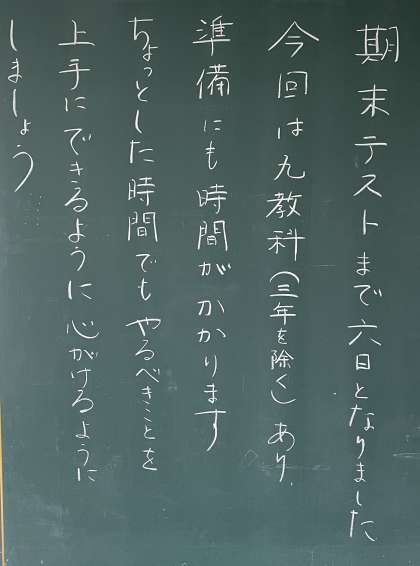 期末テストまで六日となりました
今回は九教科(三年を除く)あり、
準備にも時間がかかります
ちょっとした時間でもやるべきことを
上手にできるように心がけるように
しましょう